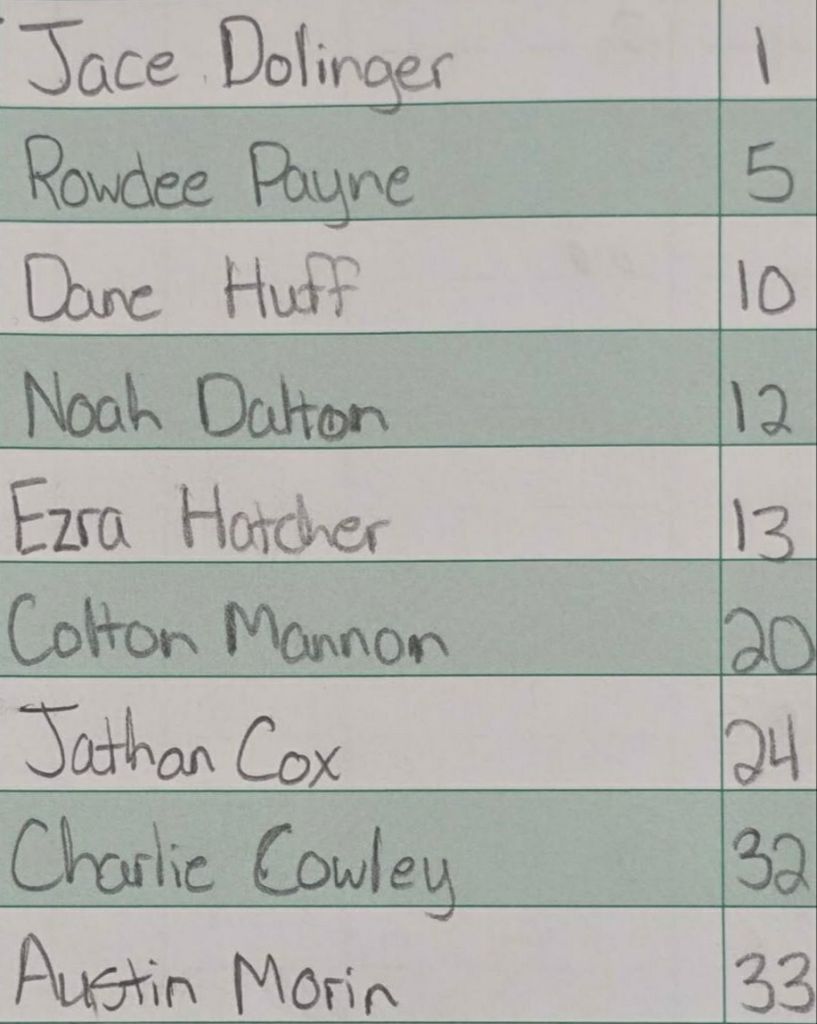 Jace Dolinger 1
Rowdee Payne 5
Dane Huff 10
Noah Dalton 12
Ezra Hatcher 13
Colton Mannon 20
Jathan Cox 24
Charlie Cowley 32
Austin Morin 33